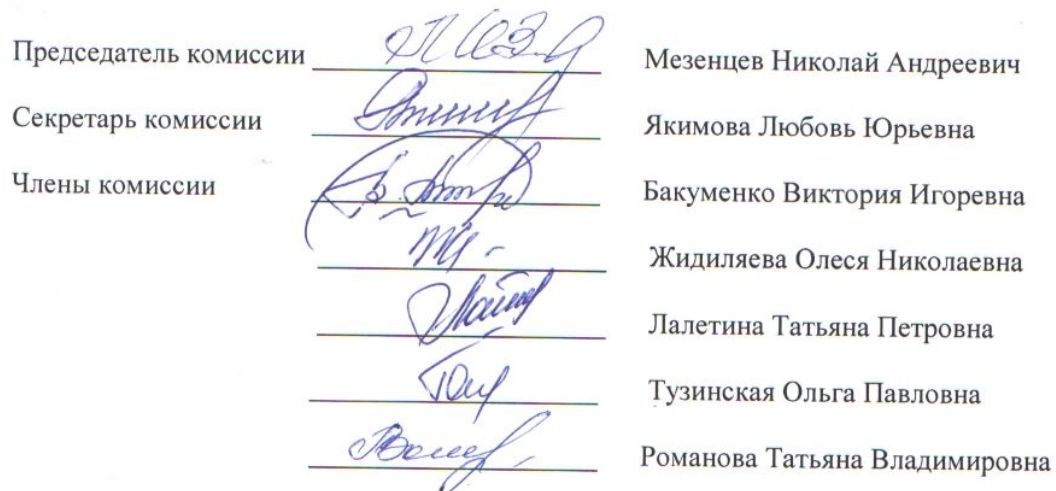 Председатель комиссии Мезенцев Николай Андреевич
Секретарь комиссии Якимова Любовь Юрьевна
Члены комиссии Бакуменко Виктория Игоревна
Жидиляева Олеся Николаевна
Лалетина Татьяна Петровна
Тузинская Ольга Павловна
Романова Татьяна Владимировна